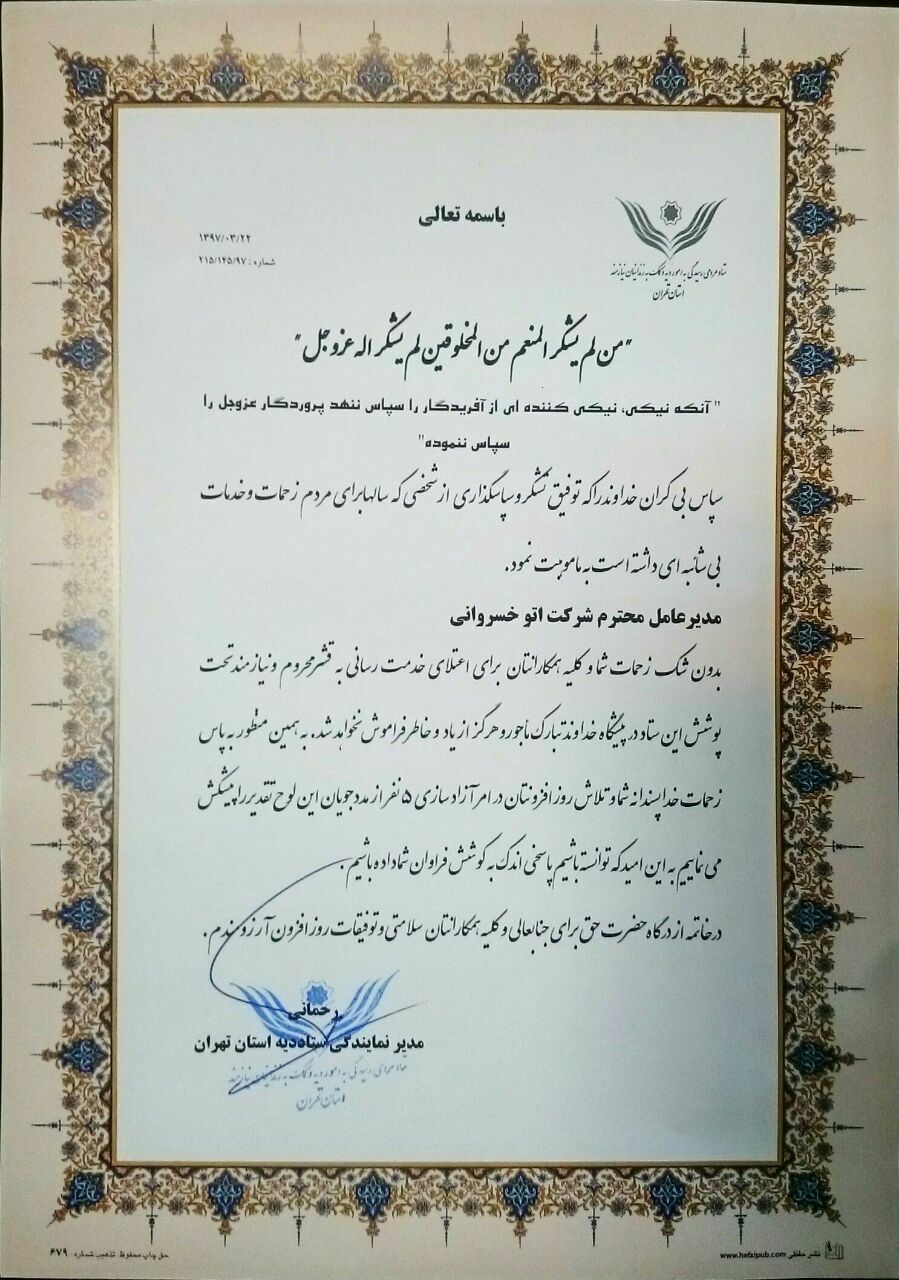 باسمه تعالی
۱۳۹۷/۰۳/۲۲
شماره : ۲۱۵/۱۴۵/۹۷
ستاد مردمی رسیدگی به امور دیه و کمک به زندانیان نیازمند
استان تهران
"من لم یشکر المنعم من المخلوقین لم یشکر اله عزوجل"
" آنکه نیکی، نیکی کننده ای از آفریدگار را سپاس ننهد پروردگار عزوجل را
سپاس ننموده"
سپاس بی کران خداوند را که توفیق تشکر و سپاسگذاری از شخصی که سالها برای مردم زحمات و خدمات
بی شائبه ای داشته است به ما موهبت نمود.
مدیرعامل محترم شرکت اتو خسروانی
بدون شک زحمات شما و کلیه همکارانتان برای اعتلای خدمت رسانی به قشر محروم و نیازمند تحت
پوشش این ستاد در پیشگاه خداوند تبارک مأجور و هرگز از یاد و خاطر فراموش نخواهد شد. به همین منظور به پاس
زحمات خداپسندانه شما و تلاش روزافزونتان در امر آزادسازی ۵ نفر از مددجویان این لوح تقدیر را پیشکش
می نماییم به این امید که توانسته باشیم پاسخی اندک به کوشش فراوان شما داده باشیم.
در خاتمه از درگاه حضرت حق برای جنابعالی و کلیه همکارانتان سلامتی و توفیقات روزافزون آرزومندم.
رحمانی
مدیر نمایندگی ستاددیه استان تهران
ستاد مردمی رسیدگی به امور دیه و کمک به زندانیان نیازمند
استان تهران
نشر حفظی www.hefzipub.com
حق چاپ محفوظ. تذهیب شماره ۶۷۹